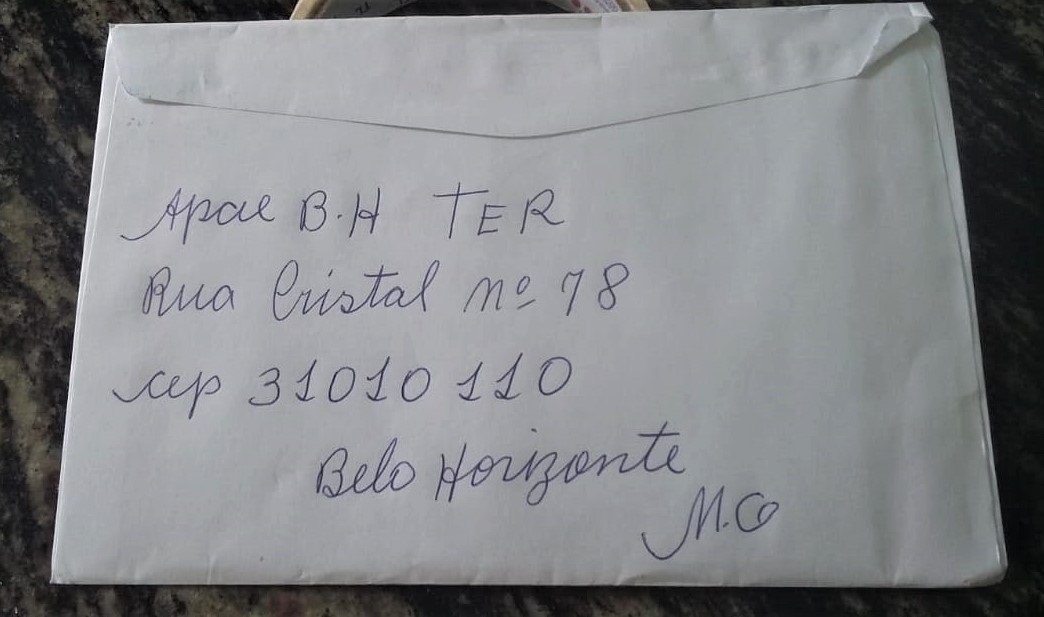 Apae B.H TER
Rua Cristal nº 78
cep 31010 110
Belo Horizonte
M.G